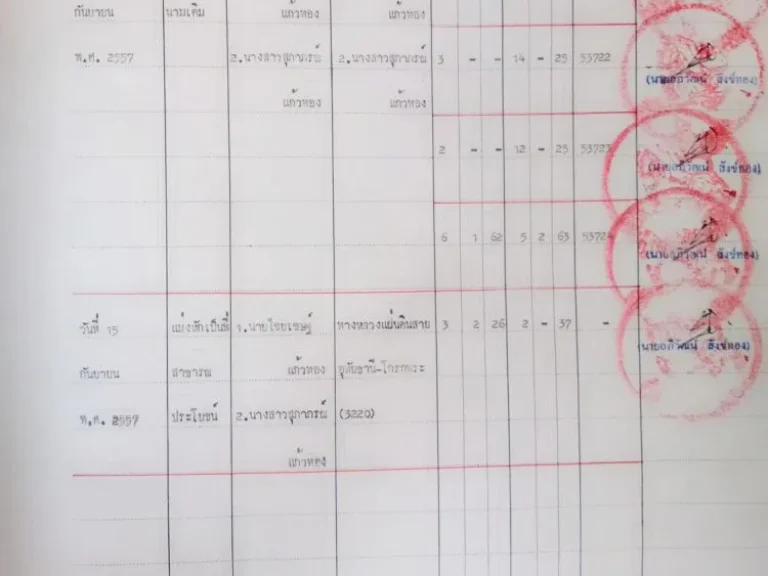 แก้วทอง แก้วทอง
กันยายน นามเดิม
พ.ศ. 2557 2.นางสาวสุภาภรณ์ 2.นางสาวสุภาภรณ์ 3 - - 14 - 25 53722
(นายอภิวัฒน์ สังข์ทอง)
แก้วทอง แก้วทอง
2 - - 12 - 25 53723
(นายอภิวัฒน์ สังข์ทอง)
6 1 62 5 2 63 53724
(นายอภิวัฒน์ สังข์ทอง)
วันที่ 15 แบ่งหักเป็นที่ 1.นายไชยเชษฐ์ ทางหลวงแผ่นดินสาย 3 2 26 2 - 37 -
(นายอภิวัฒน์ สังข์ทอง)
กันยายน สาธารณ แก้วทอง อุทัยธานี-โกรกพระ
พ.ศ. 2557 ประโยชน์ 2.นางสาวสุภาภรณ์ (3220)
แก้วทอง